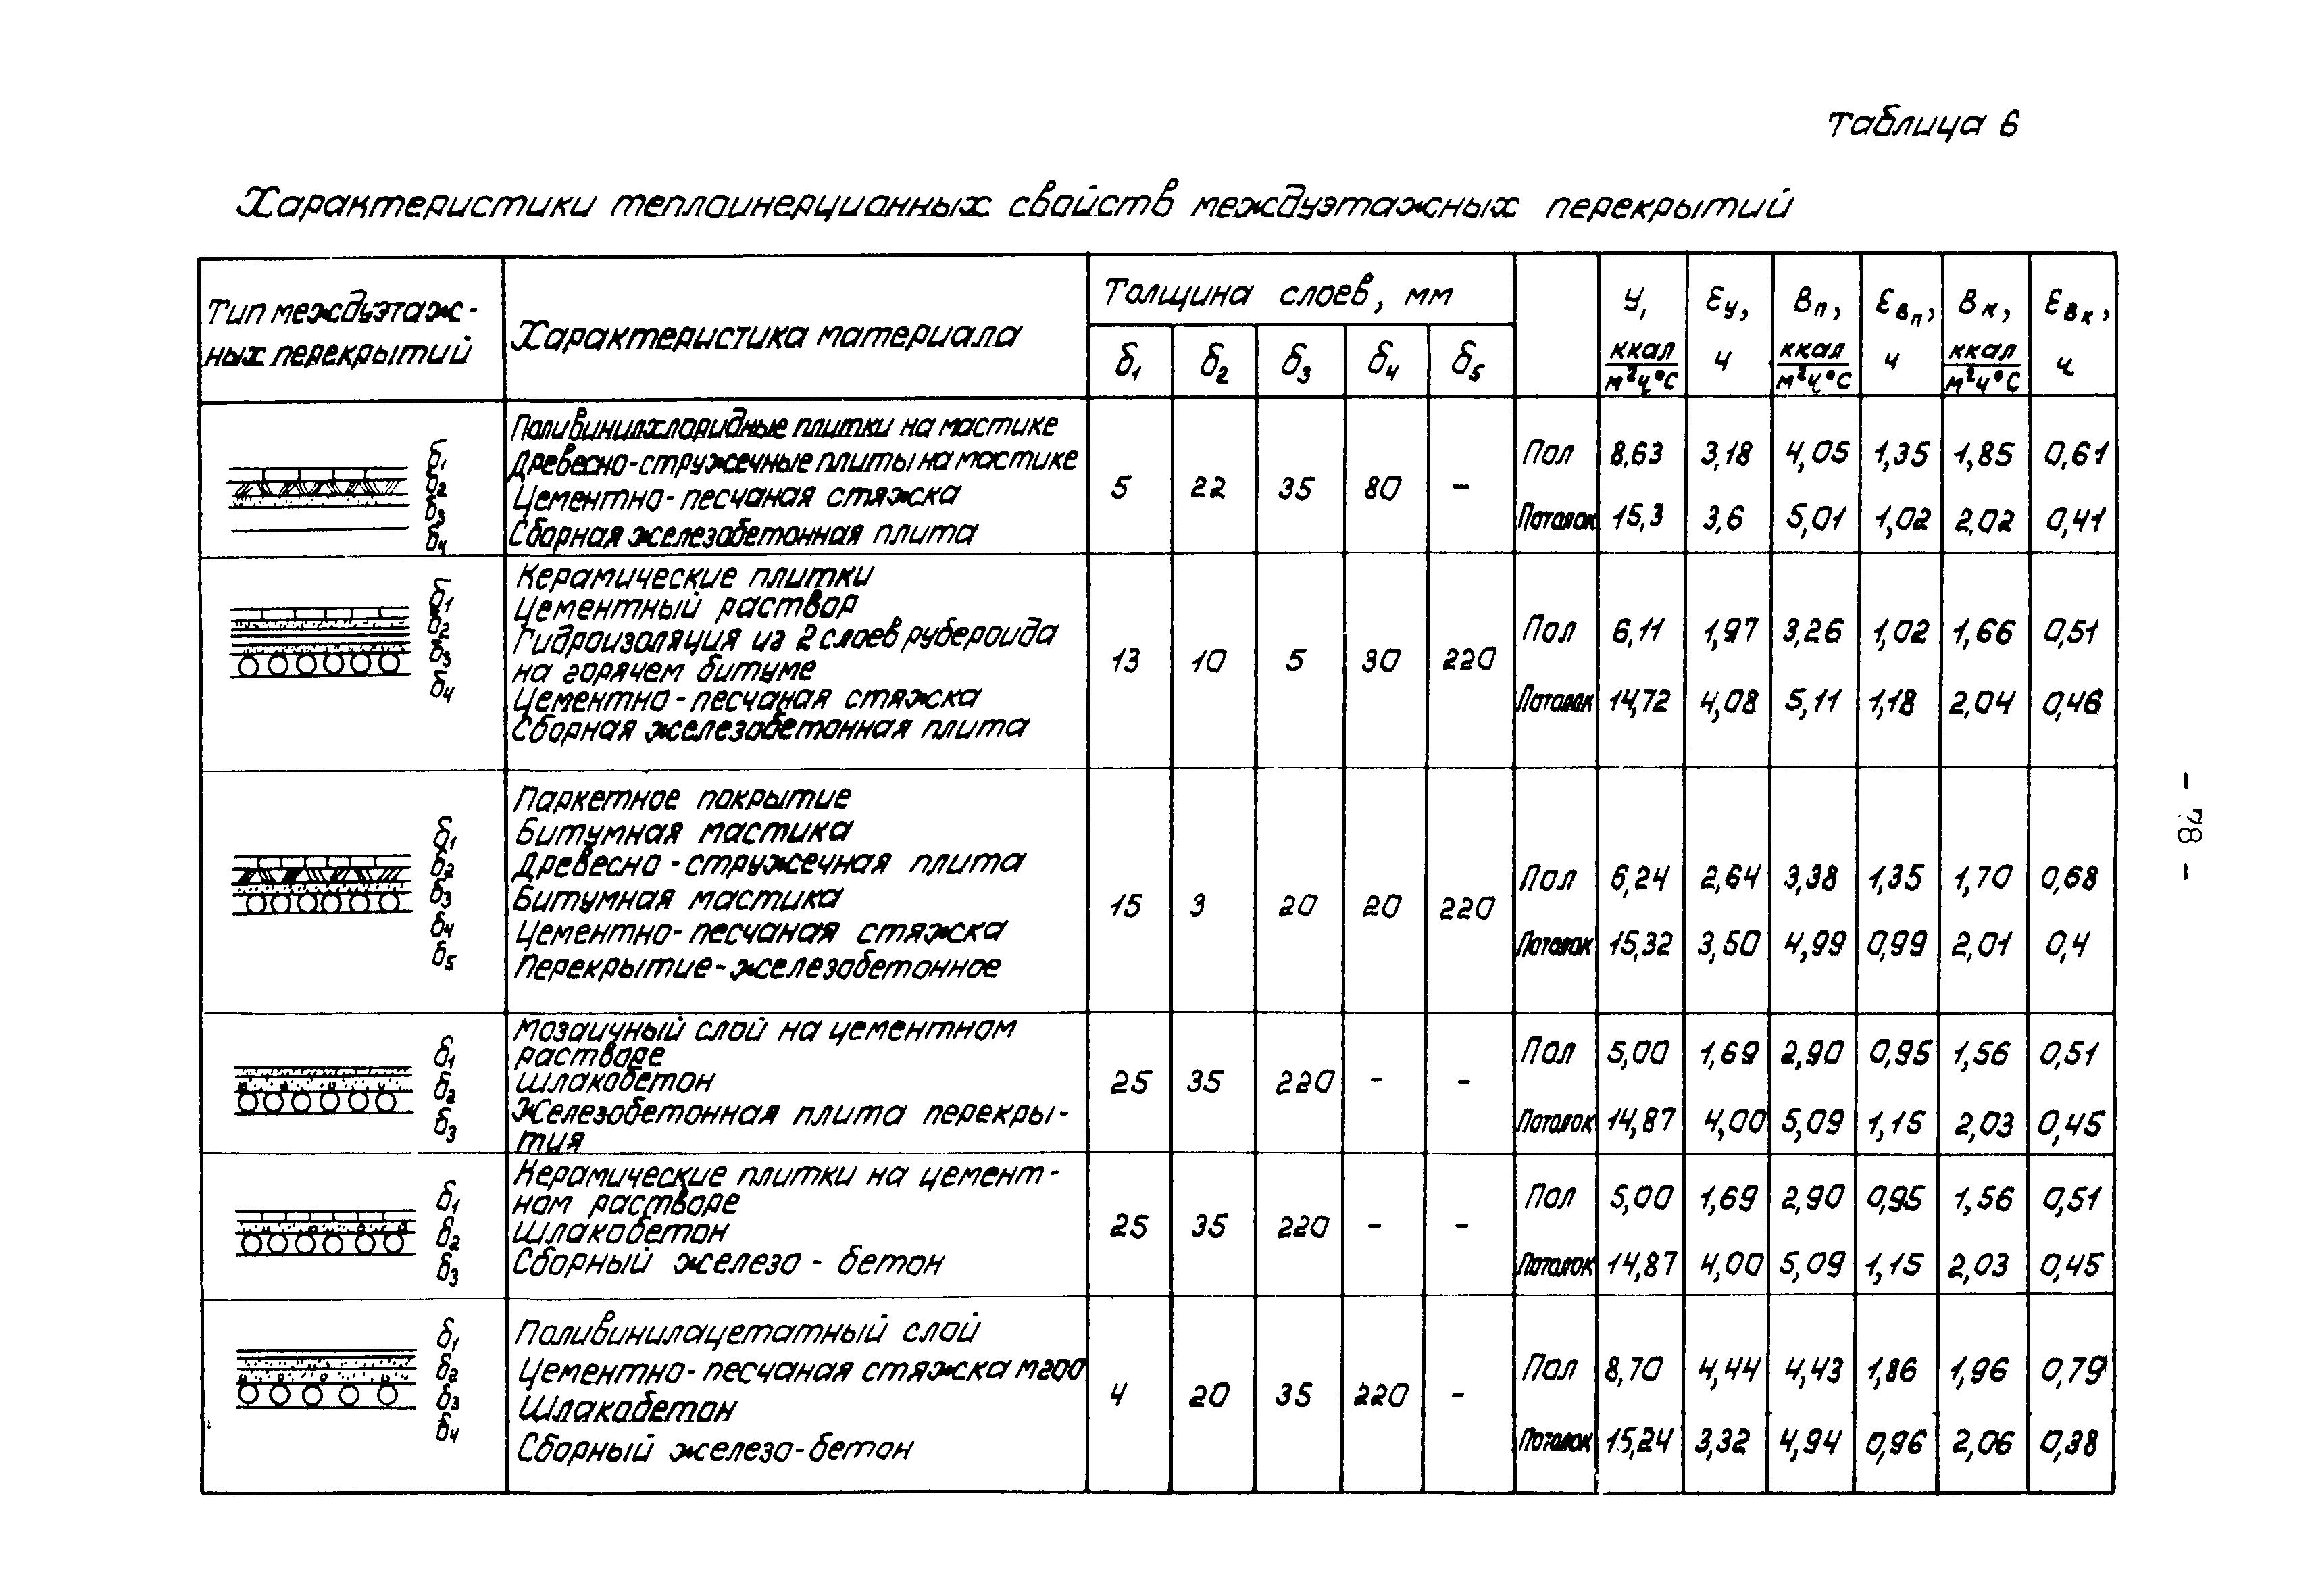 Таблица 6
Характеристики теплоинерционных свойств междуэтажных перекрытий
Тип междуэтаж-
ных перекрытий
Характеристика материала
Толщина слоев, мм
δ1 δ2 δ3 δ4 δ5
У, ккал/м²ч°С
εу, ч
Вп, ккал/м²ч°С
εВп, ч
Вк, ккал/м²ч°С
εВк, ч
δ1
δ2
δ3
δ4
Поливинилхлоридные плитки на мастике
Древесно-стружечные плиты на мастике
Цементно-песчаная стяжка
Сборная железобетонная плита
5 22 35 80 -
Пол 8,63 3,18 4,05 1,35 1,85 0,61
Потолок 15,3 3,6 5,01 1,02 2,02 0,41
δ1
δ2
δ3
δ4
Керамические плитки
Цементный раствор
Гидроизоляция из 2 слоев рубероида
на горячем битуме
Цементно-песчаная стяжка
Сборная железобетонная плита
13 10 5 30 220
Пол 6,11 1,97 3,26 1,02 1,66 0,51
Потолок 14,72 4,08 5,11 1,18 2,04 0,46
δ1
δ2
δ3
δ4
δ5
Паркетное покрытие
Битумная мастика
Древесно-стружечная плита
Битумная мастика
Цементно-песчаная стяжка
Перекрытие-железобетонное
15 3 20 20 220
Пол 6,24 2,64 3,38 1,35 1,70 0,68
Потолок 15,32 3,50 4,99 0,99 2,01 0,4
δ1
δ2
δ3
Мозаичный слой на цементном
растворе
Шлакобетон
Железобетонная плита перекры-
тия
25 35 220 - -
Пол 5,00 1,69 2,90 0,95 1,56 0,51
Потолок 14,87 4,00 5,09 1,15 2,03 0,45
δ1
δ2
δ3
Керамические плитки на цемент-
ном растворе
Шлакобетон
Сборный железо-бетон
25 35 220 - -
Пол 5,00 1,69 2,90 0,95 1,56 0,51
Потолок 14,87 4,00 5,09 1,15 2,03 0,45
δ1
δ2
δ3
δ4
Поливинилацетатный слой
Цементно-песчаная стяжка М200
Шлакобетон
Сборный железо-бетон
4 20 35 220 -
Пол 8,70 4,44 4,43 1,86 1,96 0,79
Потолок 15,24 3,32 4,94 0,96 2,06 0,38
- 78 -